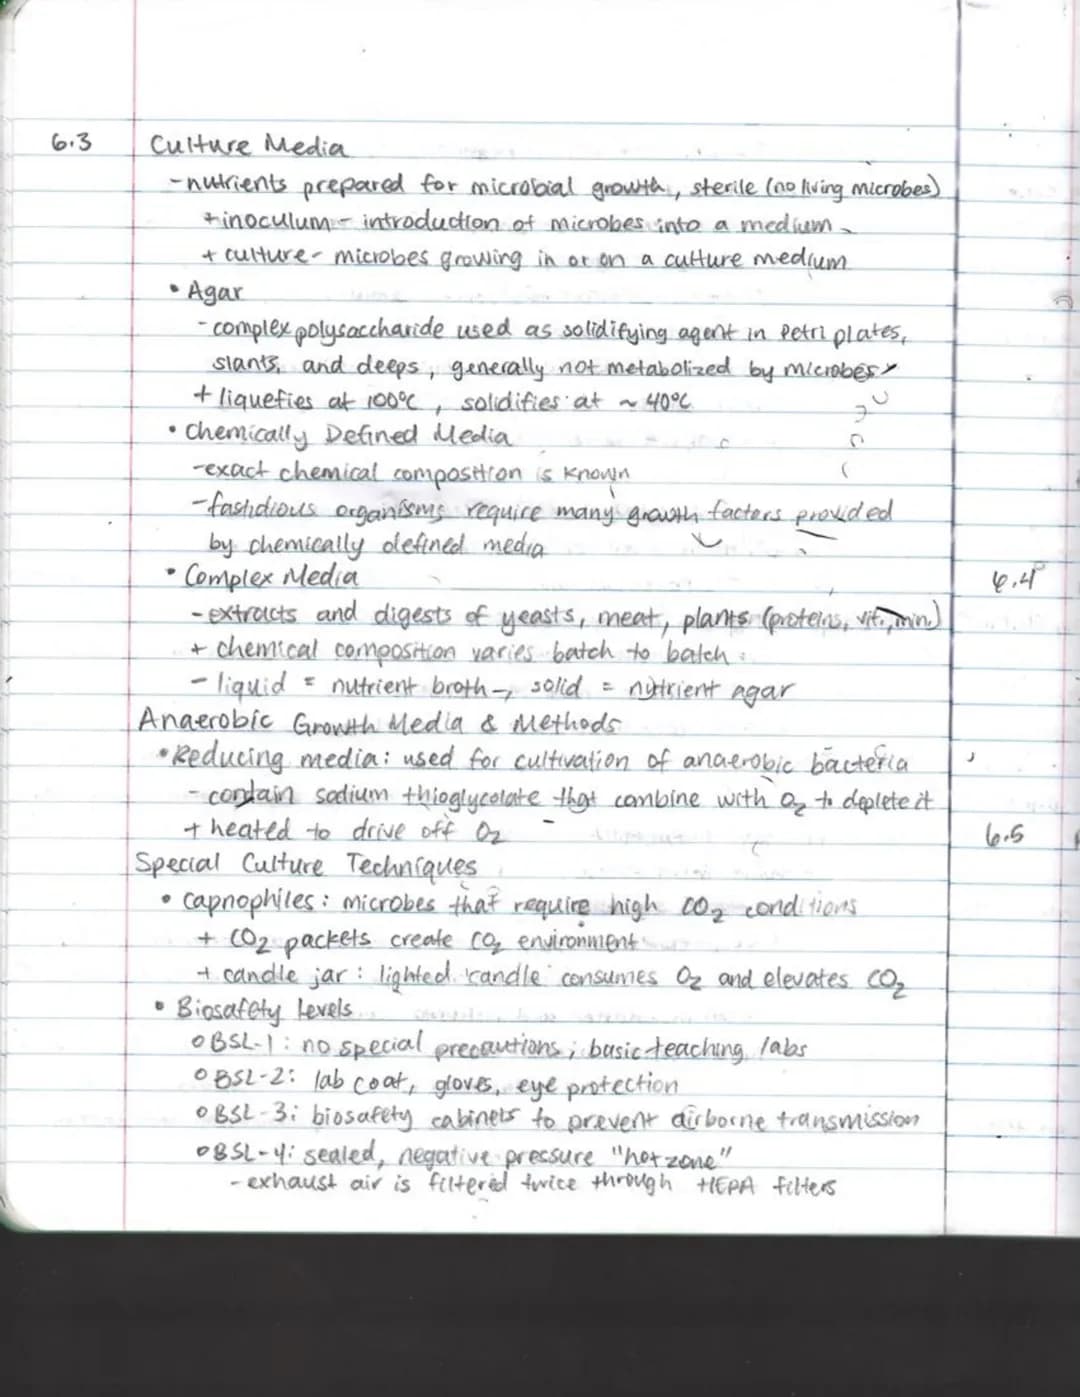 6.3 Culture Media
-nutrients prepared for microbial growth, sterile (no living microbes)
+ inoculum - introduction of microbes into a medium
+ culture - microbes growing in or on a culture medium
• Agar
- complex polysaccharide used as solidifying agent in Petri plates,
slants, and deeps, generally not metabolized by microbes
+ liquefies at 100°C, solidifies at ~ 40°C
• Chemically Defined Media
-exact chemical composition is known
-fastidious organisms require many growth factors provided
by chemically defined media
• Complex Media
6.4
-extracts and digests of yeasts, meat, plants (proteins, vit., min.)
+ chemical composition varies batch to batch
- liquid = nutrient broth, solid = nutrient agar
Anaerobic Growth Media & Methods
• Reducing media: used for cultivation of anaerobic bacteria
- contain sodium thioglycolate that combine with O₂ to deplete it
+ heated to drive off O₂
6.5
Special Culture Techniques
• capnophiles: microbes that require high CO₂ conditions
+ CO₂ packets create CO₂ environment
+ candle jar: lighted candle consumes O₂ and elevates CO₂
• Biosafety Levels
o BSL-1: no special precautions; basic teaching labs
o BSL-2: lab coat, gloves, eye protection
o BSL-3: biosafety cabinets to prevent airborne transmission
o BSL-4: sealed, negative pressure "hot zone"
- exhaust air is filtered twice through HEPA filters